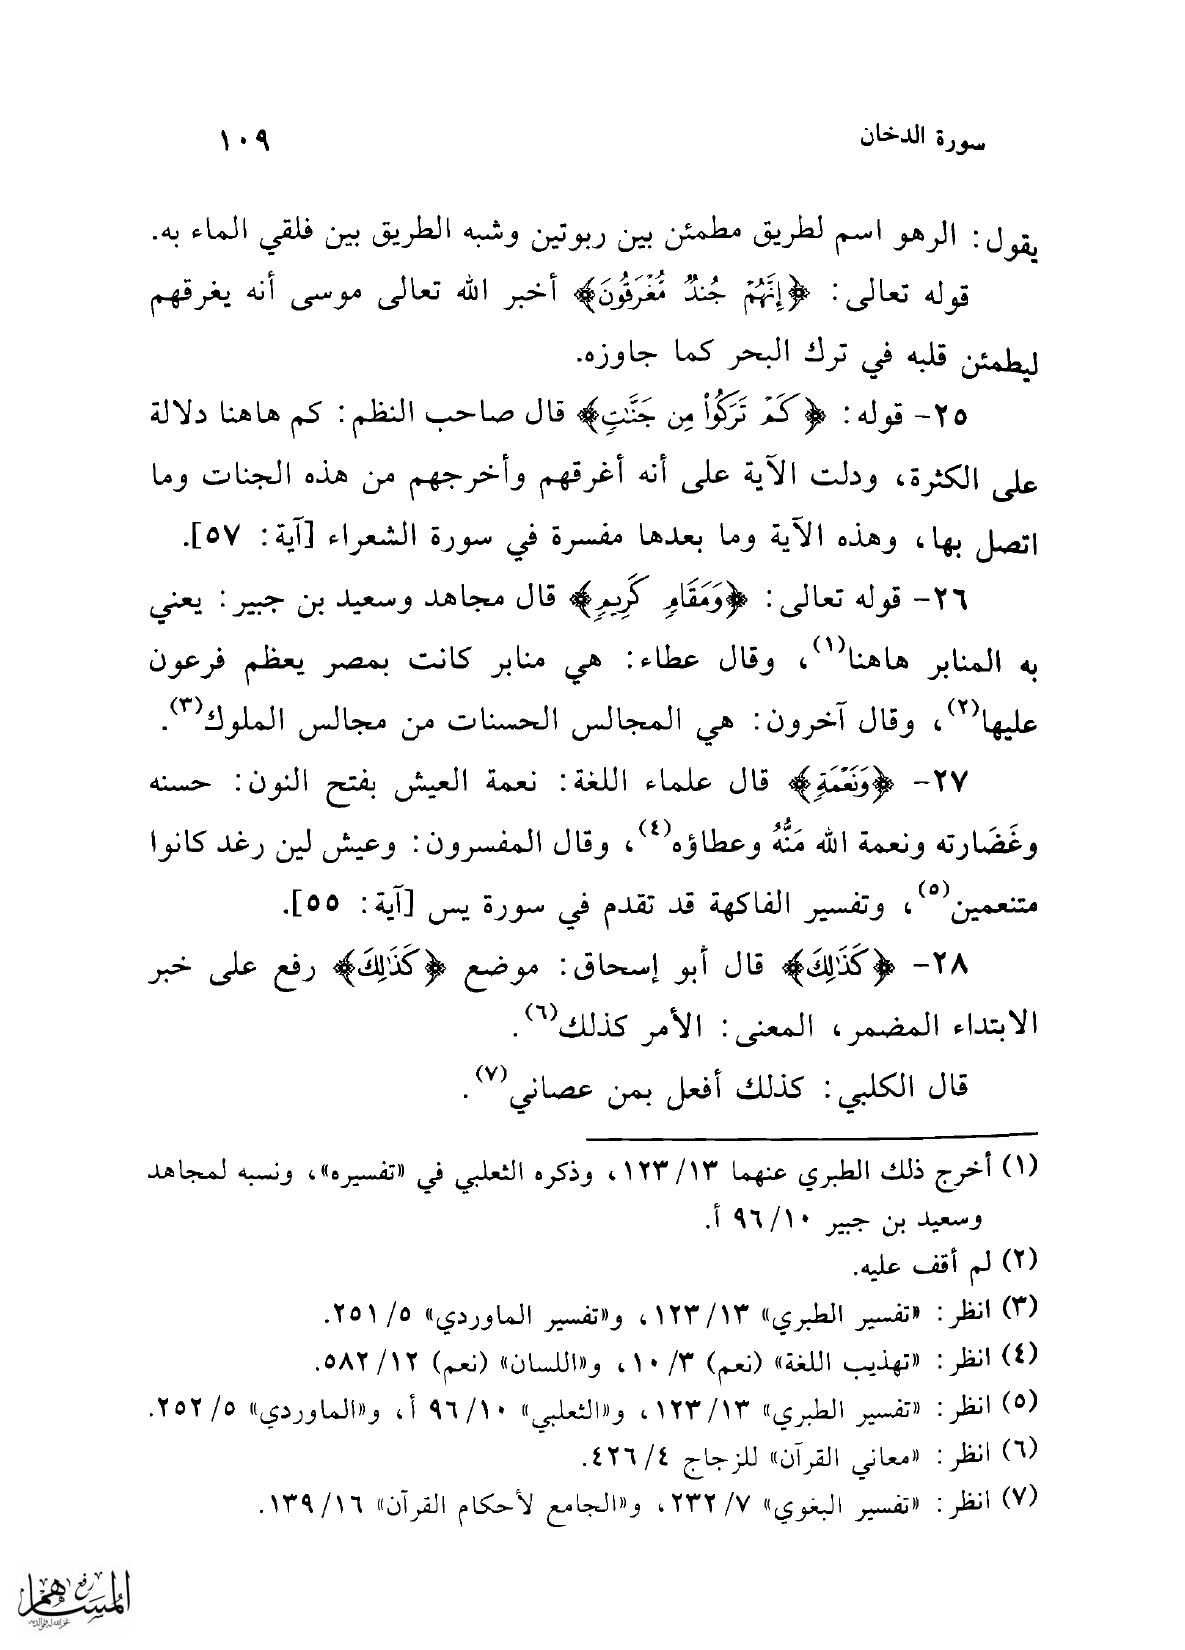 سورة الدخان ١٠٩
يقول: الرهو اسم لطريق مطمئن بين ربوتين وشبه الطريق بين فلقي الماء به.
قوله تعالى: ﴿إِنَّهُمْ جُندٌ مُّغْرَقُونَ﴾ أخبر الله تعالى موسى أنه يغرقهم
ليطمئن قلبه في ترك البحر كما جاوزه.
٢٥- قوله: ﴿كَمْ تَرَكُواْ مِن جَنَّٰتٍ﴾ قال صاحب النظم: كم هاهنا دلالة
على الكثرة، ودلت الآية على أنه أغرقهم وأخرجهم من هذه الجنات وما
اتصل بها، وهذه الآية وما بعدها مفسرة في سورة الشعراء [آية: ٥٧].
٢٦- قوله تعالى: ﴿وَمَقَامٍ كَرِيمٍ﴾ قال مجاهد وسعيد بن جبير: يعني
به المنابر هاهنا(١)، وقال عطاء: هي منابر كانت بمصر يعظم فرعون
عليها(٢)، وقال آخرون: هي المجالس الحسنات من مجالس الملوك(٣).
٢٧- ﴿وَنَعْمَةٍ﴾ قال علماء اللغة: نعمة العيش بفتح النون: حسنه
وغَضَارته ونعمة الله مَنُّهُ وعطاؤه(٤)، وقال المفسرون: وعيش لين رغد كانوا
متنعمين(٥)، وتفسير الفاكهة قد تقدم في سورة يس [آية: ٥٥].
٢٨- ﴿كَذَٰلِكَ﴾ قال أبو إسحاق: موضع ﴿كَذَٰلِكَ﴾ رفع على خبر
الابتداء المضمر، المعنى: الأمر كذلك(٦).
قال الكلبي: كذلك أفعل بمن عصاني(٧).
(١) أخرج ذلك الطبري عنهما ١٣/ ١٢٣، وذكره الثعلبي في «تفسيره»، ونسبه لمجاهد
وسعيد بن جبير ١٠/ ٩٦ أ.
(٢) لم أقف عليه.
(٣) انظر: «تفسير الطبري» ١٣/ ١٢٣، و«تفسير الماوردي» ٥/ ٢٥١.
(٤) انظر: «تهذيب اللغة» (نعم) ٣/ ١٠، و«اللسان» (نعم) ١٢/ ٥٨٢.
(٥) انظر: «تفسير الطبري» ١٣/ ١٢٣، و«الثعلبي» ١٠/ ٩٦ أ، و«الماوردي» ٥/ ٢٥٢.
(٦) انظر: «معاني القرآن» للزجاج ٤/ ٤٢٦.
(٧) انظر: «تفسير البغوي» ٧/ ٢٣٢، و«الجامع لأحكام القرآن» ١٦/ ١٣٩.
رفع
المساهم